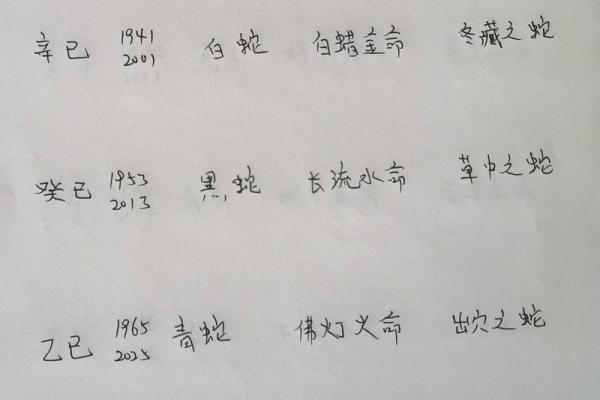 辛巳 1941 2001 白蛇 白蜡金命 冬藏之蛇
癸巳 1953 2013 黑蛇 长流水命 草中之蛇
乙巳 1965 2025 青蛇 佛灯火命 出穴之蛇